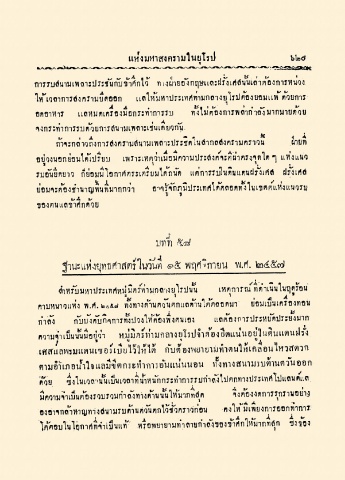 แห่งมหาสงครามในยุโรป ๖๒๙
การรบสนามเพลาะประชันกับข้าศึกไว้ ทางฝ่ายอังกฤษและฝรั่งเศสนั้นเล่าต้องการหน่วง
ให้เวลาการสงครามยืดออก และให้มหาประเทศท่ามกลางยุโรปต้องยอมแพ้ด้วยการ
อดอาหาร และหมดเครื่องมือกระทำการรบ ทั้งไม่ต้องการพล่ากำลังมากมายด้วย
จงกระทำการรบด้วยการสนามเพลาะเช่นเดียวกัน
ถ้าจะกล่าวถึงการสงครามสนามเพลาะประชิดในสากลสงครามคราวนี้ ฝ่ายที่
อยู่วงนอกย่อมได้เปรียบ เพราะเหตุว่าเมื่อมีความประสงค์จะตีฝ่าตรงจุดใด ๆ แห่งแนว
รบอันยืดยาว ก็ย่อมมีโอกาศตระเตรียมได้ถนัด แต่การรบในดินแดนฝรั่งเศส ฝรั่งเศส
ย่อมจะต้องชำนาญพื้นที่มากกว่า อาจรู้จักภูมิประเทศได้ตลอดทั้งในเขตต์แห่งแนวรบ
ของตนและข้าศึกด้วย
บทที่ ๕๗
ฐานะแห่งยุทธศาสตร์ในวันที่ ๑๕ พฤศจิกายน พ.ศ. ๒๔๕๗
สำหรับมหาประเทศหมู่มิตร์ท่ามกลางยุโรปนั้น เหตุการณ์ที่ดำเนินในฤดูร้อน
คาบหนาวแห่ง พ.ศ. ๒๔๕๗ ทั้งทางด้านตวันตกและด้านใต้ตลอดมา ย่อมเป็นเครื่องทอน
กำลัง กับบังคับกิจการทั้งปวงให้ต้องพึ่งตนเอง และต้องการประหยัดระยะมาก
ความจำเป็นนั้นมีอยู่ว่า หมู่มิตร์ท่ามกลางยุโรปจำต้องยึดแน่นอยู่ในดินแดนฝรั่ง
เศสและพรมแดนเซอร์เบียไว้ให้ได้ กับต้องพยายามทำตนให้เคลื่อนไหวสดวก
ตามอำเภอน้ำใจและมีขีดกะทำการอันแน่นนอน ทั้งทางสนามรบด้านตวันออก
ด้วย ซึ่งในเวลานั้นเป็นเวลาที่น้ำหนักกระทำการรบกำลังไปตกทางประเทศโปแลนด์และ
มีความจำเป็นต้องรวบรวมกำลังทางด้านนั้นให้มากที่สุด จึงต้องงดการรุกรานอย่าง
องอาจกล้าหาญทางสนามรบด้านตวันตกไว้ชั่วคราวก่อน คงให้มีเพียงการออกทำการ
โต้ตอบในโอกาศที่จำเป็นแท้ หรือพยายามทำลายกำลังของข้าศึกให้มากที่สุด ซึ่งข้อง